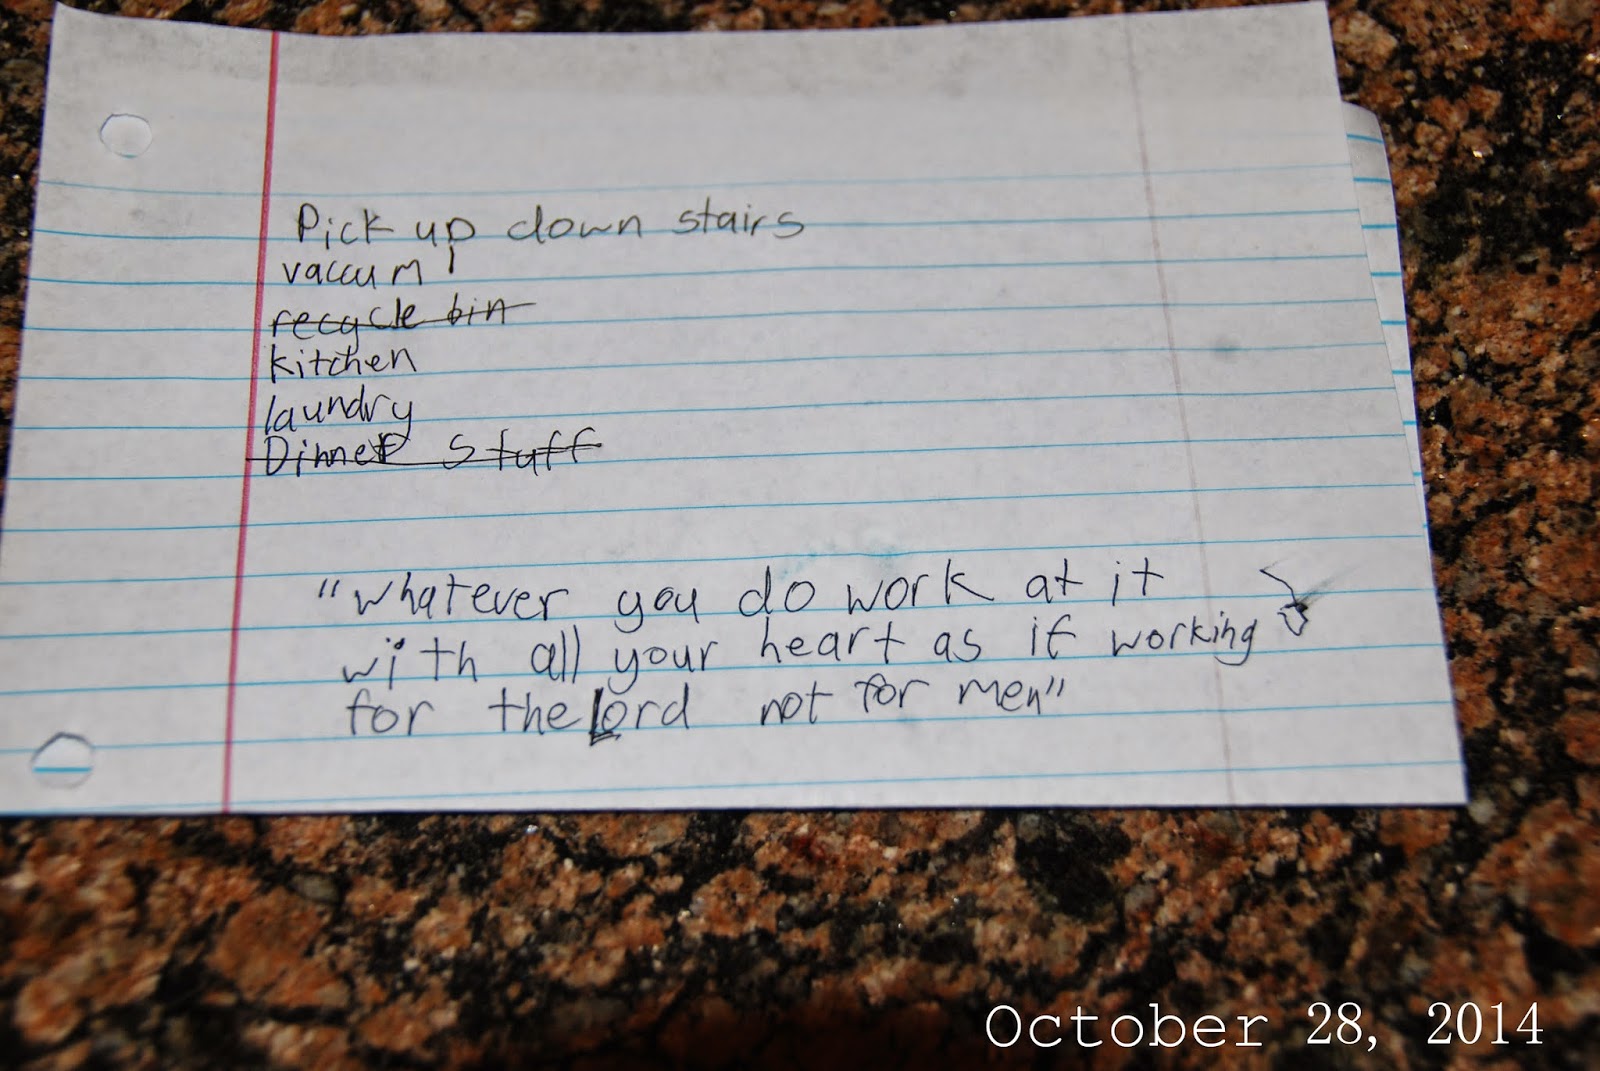 Pick up down stairs
vaccum
recycle bin
kitchen
laundry
Dinner stuff
"whatever you do work at it
with all your heart as if working
for the Lord not for men"
October 28, 2014